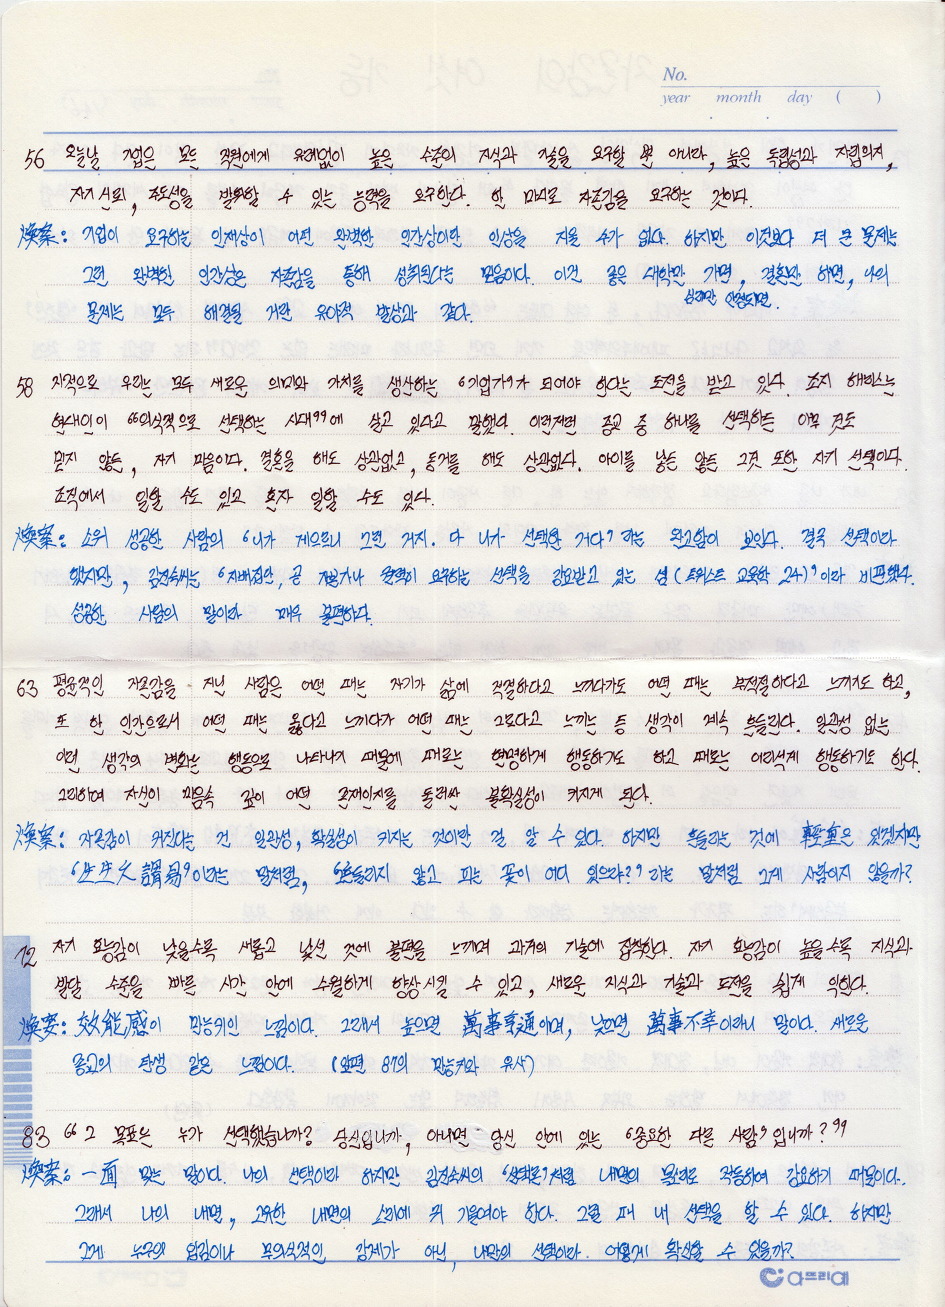 No.
year month day ( )
56 오늘날 기업은 모든 직원에게 유례없이 높은 수준의 지식과 기술을 요구할 뿐 아니라, 높은 독립성과 자립의지,
자기 신뢰, 주도성을 발휘할 수 있는 능력을 요구한다. 한 마디로 자존감을 요구하는 것이다.
煥案: 기업이 요구하는 인재상이 어떤 완벽한 인간상이란 인상을 지울 수가 없다. 하지만 이것보다 더 큰 문제는
그런 완벽한 인간상은 자존감을 통해 성취된다는 믿음이다. 이건 좋은 대학만 가면, 결혼만 하면, 나의
심리만 안정되면.
문제는 모두 해결될 거란 유아적 발상과 같다.
58 지적으로 우리는 모두 새로운 의미와 가치를 생산하는 '기업가'가 되어야 한다는 도전을 받고 있다. 조지 해비스는
현대인이 "의식적으로 선택하는 시대"에 살고 있다고 말했다. 이런저런 종교 중 하나를 선택하든 아무 것도
믿지 않든, 자기 마음이다. 결혼을 해도 상관없고, 동거를 해도 상관없다. 아이를 낳든 않든 그것 또한 자기 선택이다.
조직에서 일할 수도 있고 혼자 일할 수도 있다.
煥案: 소위 성공한 사람의 '니가 게으르니 그런 거지. 다 니가 선택한 거다'라는 완고함이 보인다. 결국 선택이라
했지만, 김진숙씨는 '지배집단, 곧 개발가나 권력이 요구하는 선택을 강요받고 있는 셈(트위스트 교육학 24)'이라 비판했다.
성공한 사람의 말이라 매우 불편하다.
63 평균적인 자존감을 지닌 사람은 어떤 때는 자기가 삶에 적절하다고 느끼다가도 어떤 때는 부적절하다고 느끼기도 하고,
또 한 인간으로서 어떤 때는 옳다고 느끼다가 어떤 때는 그르다고 느끼는 등 생각이 계속 흔들린다. 일관성 없는
이런 생각의 변화는 행동으로 나타나기 때문에 때로는 현명하게 행동하기도 하고 때로는 어리석게 행동하기도 한다.
그리하여 자신이 마음속 깊이 어떤 존재인지를 둘러싼 불확실성이 커지게 된다.
煥案: 자존감이 커진다는 건 일관성, 확실성이 커지는 것이란 걸 알 수 있다. 하지만 흔들리는 것에 輕重은 있겠지만
'生生之謂易'이라는 말처럼, '흔들리지 않고 피는 꽃이 어디 있으랴?'라는 말처럼 그게 사람이지 않을까?
72 자기 효능감이 낮을수록 새롭고 낯선 것에 불편을 느끼며 과거의 기술에 집착한다. 자기 효능감이 높을수록 지식과
발달 수준을 빠른 시간 안에 수월하게 향상시킬 수 있고, 새로운 지식과 기술과 도전을 쉽게 익힌다.
煥案: 效能感이 만능키인 느낌이다. 그래서 높으면 萬事亨通이며, 낮으면 萬事不幸이라니 말이다. 새로운
종교의 탄생 같은 느낌이다. (왼편 81의 만능키와 유사)
83 "그 목표는 누가 선택했습니까? 당신입니까, 아니면 당신 안에 있는 '중요한 다른 사람'입니까?"
煥案: 一面 맞는 말이다. 나의 선택이라 하지만 김진숙씨의 '선택론'처럼 내면의 목소리로 작동하여 강요하기 때문이다.
그래서 나의 내면, 고유한 내면의 소리에 귀 기울여야 한다. 그럴 때 내 선택을 할 수 있다. 하지만
그게 누구의 입김이나 무의식적인 강제가 아닌, 나만의 선택이라. 어떻게 확신할 수 있을까?
아뜨리에